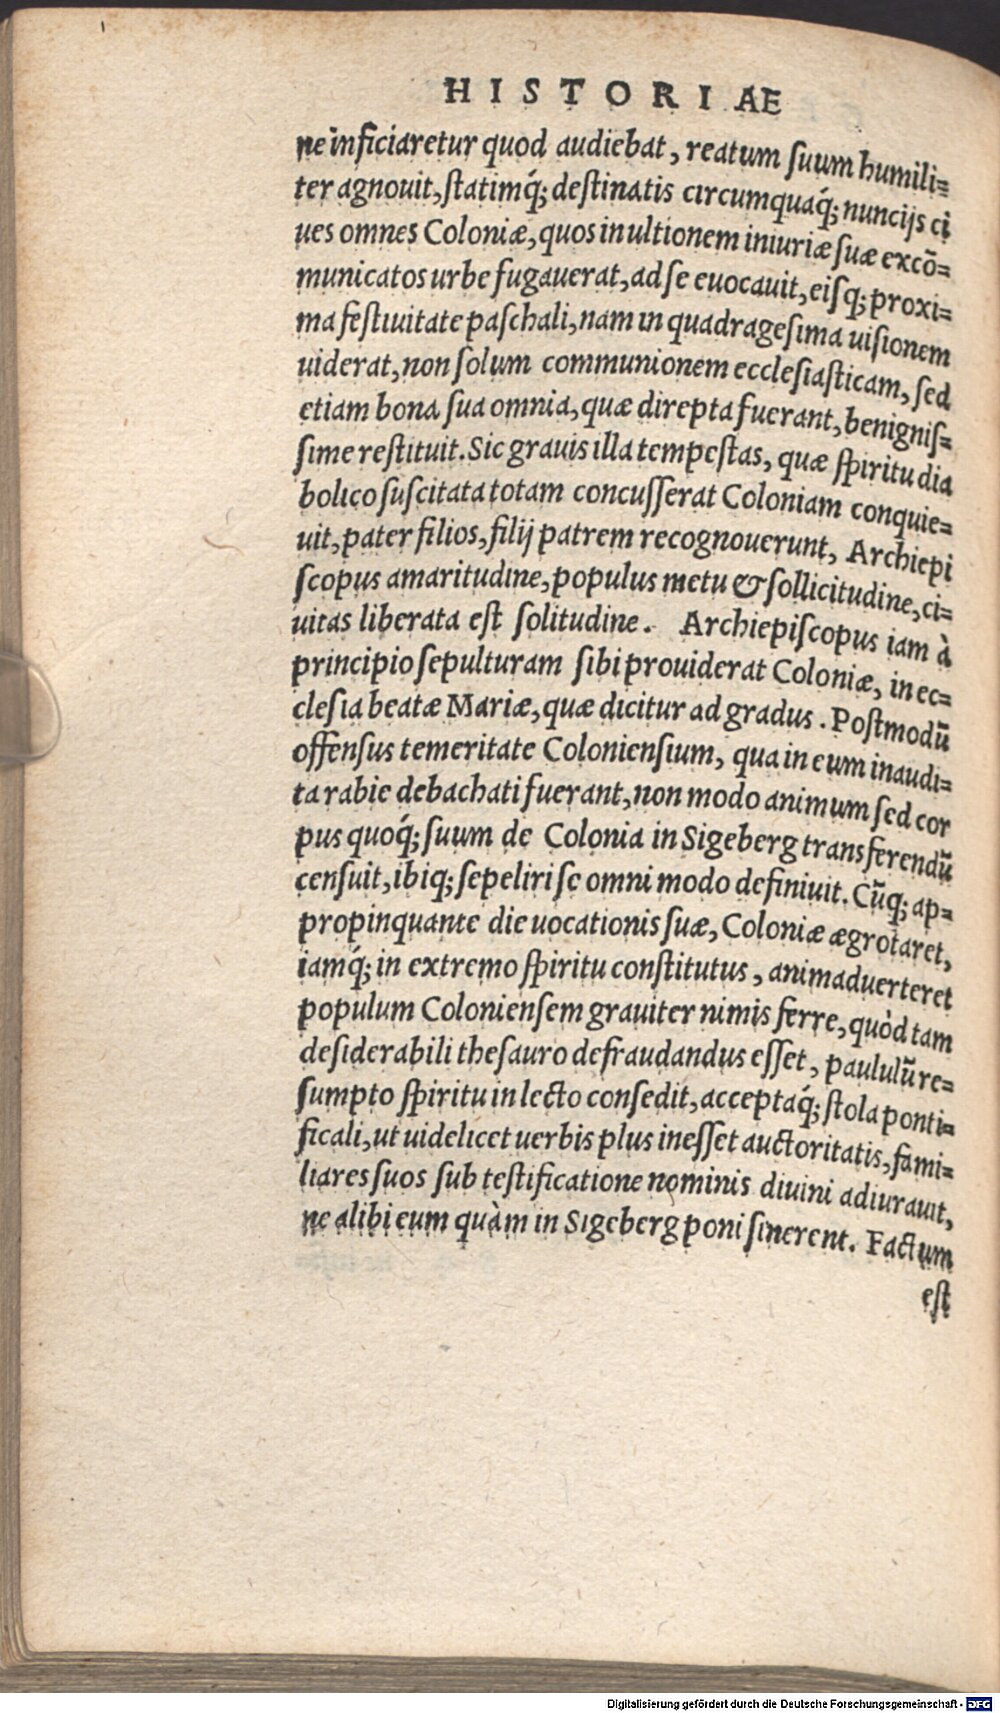 HISTORIAE
ne inficiaretur quod audiebat, reatum suum humili=
ter agnouit, statimq́; destinatis circumquaq́; nuncijs ci
ues omnes Coloniæ, quos in ultionem iniuriæ suæ excō=
municatos urbe fugauerat, ad se euocauit, eisq; proxi=
ma festiuitate paschali, nam in quadragesima uisionem
uiderat, non solum communionem ecclesiasticam, sed
etiam bona sua omnia, quæ direpta fuerant, benignis=
sime restituit. Sic grauis illa tempestas, quæ spiritu dia
bolico suscitata totam concusserat Coloniam conquie=
uit, pater filios, filij patrem recognouerunt, Archiepi
scopus amaritudine, populus metu & sollicitudine, ci=
uitas liberata est solitudine. Archiepiscopus iam à
principio sepulturam sibi prouiderat Coloniæ, in ec=
clesia beatæ Mariæ, quæ dicitur ad gradus. Postmodū
offensus temeritate Coloniensium, qua in eum inaudi=
ta rabie debachati fuerant, non modo animum sed cor
pus quoq́; suum de Colonia in Sigeberg transferendū
censuit, ibiq; sepeliri se omni modo definiuit. Cūq; ap=
propinquante die uocationis suæ, Coloniæ ægrotaret,
iamq́; in extremo spiritu constitutus, animaduerteret
populum Coloniensem grauiter nimis ferre, quòd tam
desiderabili thesauro defraudandus esset, paululū re=
sumpto spiritu in lecto consedit, acceptaq́; stola ponti=
ficali, ut uidelicet uerbis plus inesset auctoritatis, fami=
liares suos sub testificatione nominis diuini adiurauit,
ne alibi eum quàm in Sigeberg poni sinerent. Factum
est
Digitalisierung gefördert durch die Deutsche Forschungsgemeinschaft - DFG